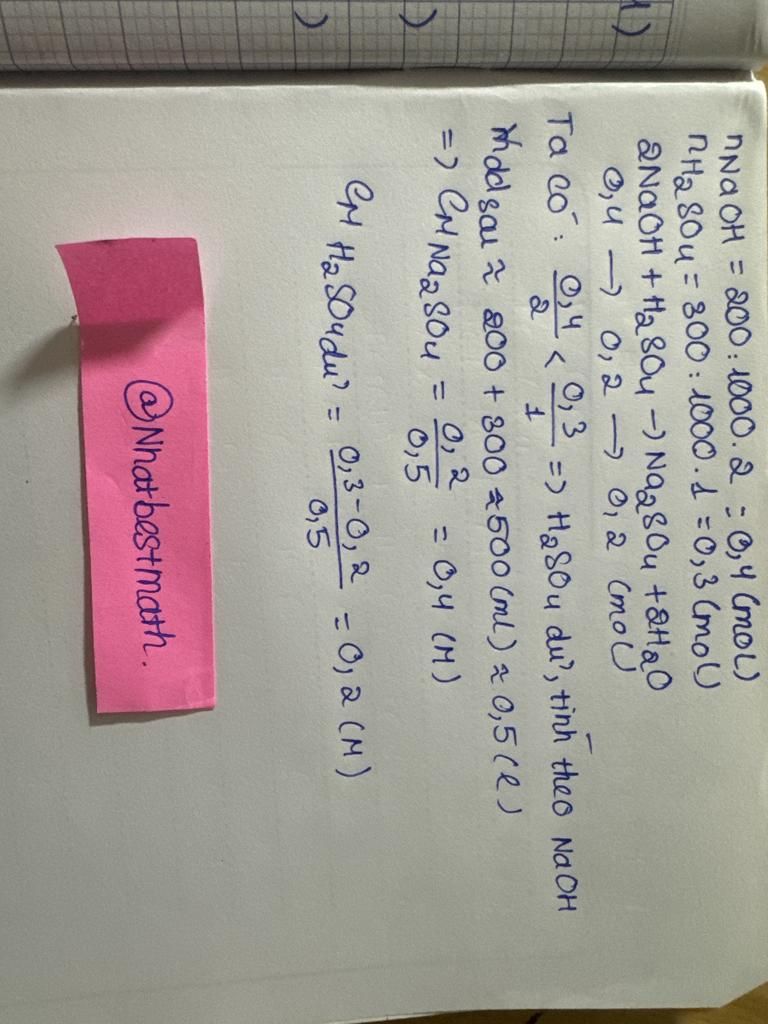 nNaOH = 200 : 1000 . 2 = 0,4 (mol)
nH2SO4 = 300 : 1000 . 1 = 0,3 (mol)
2NaOH + H2SO4 → Na2SO4 + 2H2O
0,4 → 0,2 → 0,2 (mol)
Ta có : 0,4/2 < 0,3/1 => H2SO4 dư, tính theo NaOH
dd sau ≈ 200 + 300 ≈ 500 (ml) ≈ 0,5 (l)
=> CM Na2SO4 = 0,2/0,5 = 0,4 (M)
CM H2SO4 dư = 0,3 - 0,2/0,5 = 0,2 (M)
@Nhatbestmath.